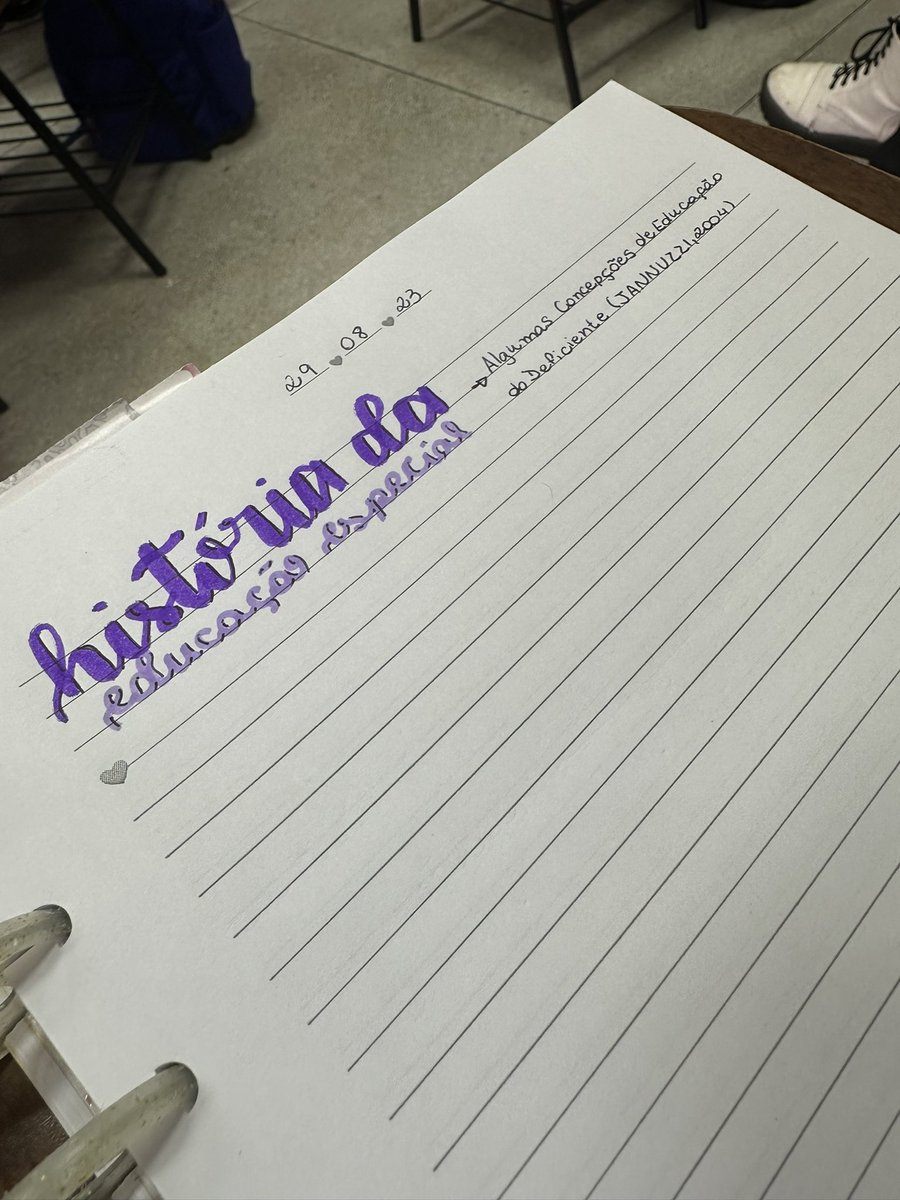 29 08 23
história da
educação especial
Algumas Concepções de Educação
do Deficiente (JANNUZZI, 2004)